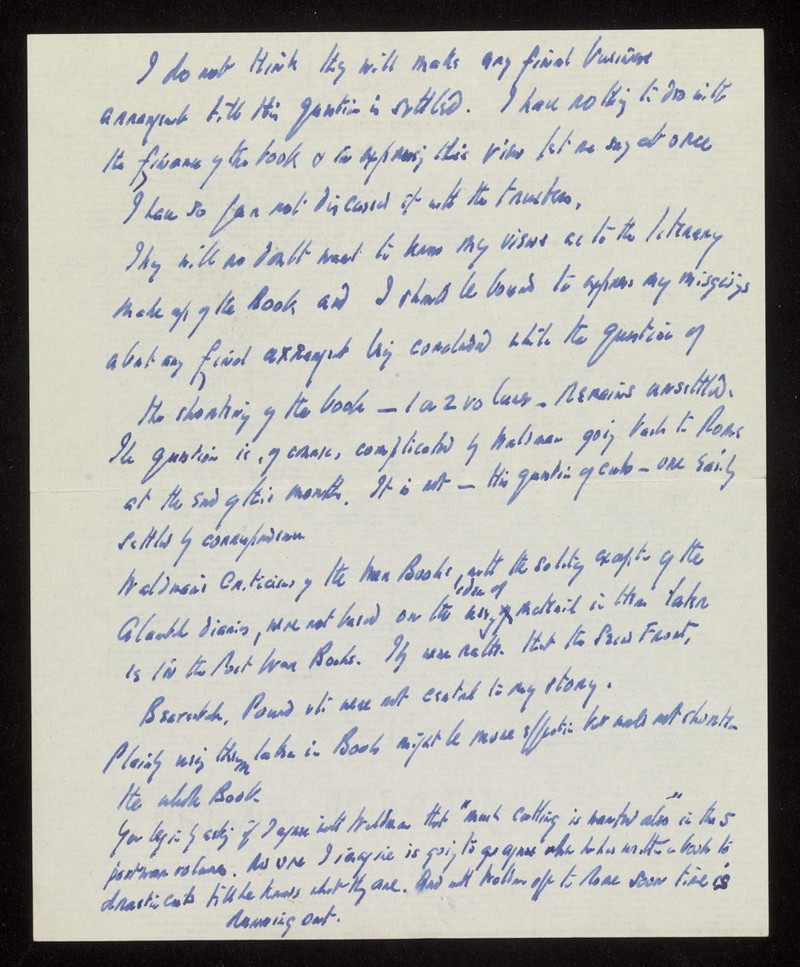 I do not think they will make any final business
arrangements till this question is settled. I have nothing to do with
the finance of the book & in expressing this view let me say at once
I have so far not discussed it with the trustees.
They will no doubt want to know my views as to the literary
make up of the Book and I should be bound to express my misgivings
about any final arrangement being concluded while the question of
the shortening of the book — 1 or 2 volumes — remains unsettled.
The question is, of course, complicated by Waldman going back to Rome
at the end of this month. It is not — this question of cuts — one easily
settled by correspondence
Waldman's Criticisms of the War Books, with the solitary exception of the
diaries, were not based on the idea of using material in them later
as in the Post War Books. They were rather that the Second Front,
Beaverbrook, Pound etc were not central to my story.
Plainly using them later in Book might be more effective but would not shorten
the whole Book.
You begin by asking if I agree with Waldman that "much cutting is wanted also" in the 5
postwar volumes. No one I imagine is going to agree when he has written a book to
drastic cuts till he knows what they are. And with Waldman off to Rome soon time is
running out.